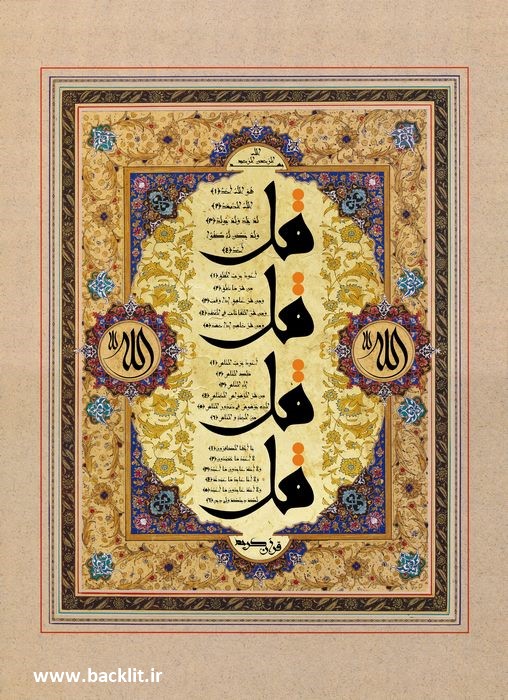 الله
الرحمن الرحيم
قل
هو الله أحد ﴿١﴾
الله الصمد ﴿٢﴾
لم يلد ولم يولد ﴿٣﴾
ولم يكن له كفوا
أحد ﴿٤﴾
قل
أعوذ برب الفلق ﴿١﴾
من شر ما خلق ﴿٢﴾
ومن شر غاسق إذا وقب ﴿٣﴾
ومن شر النفاثات في العقد ﴿٤﴾
ومن شر حاسد إذا حسد ﴿٥﴾
الله
الله
قل
أعوذ برب الناس ﴿١﴾
ملك الناس ﴿٢﴾
إله الناس ﴿٣﴾
من شر الوسواس الخناس ﴿٤﴾
الذي يوسوس في صدور الناس ﴿٥﴾
من الجنة و الناس ﴿٦﴾
قل
يا أيها الكافرون ﴿١﴾
لا أعبد ما تعبدون ﴿٢﴾
ولا أنتم عابدون ما أعبد ﴿٣﴾
ولا أنا عابد ما عبدتم ﴿٤﴾
ولا أنتم عابدون ما أعبد ﴿٥﴾
لكم دينكم ولي دين ﴿٦﴾
قرآن كريم
www.backlit.ir